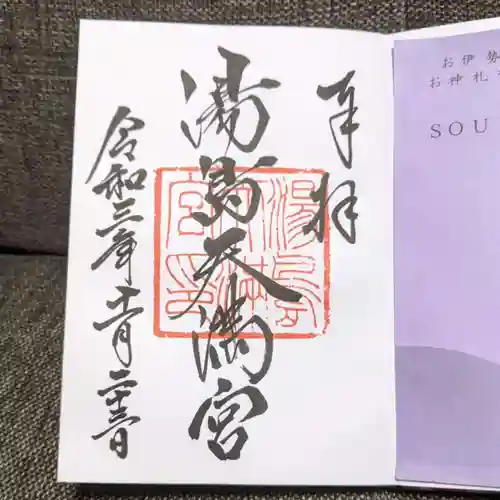 お伊勢
お神札
SOU
奉拝
湯島天満宮
令和三年十一月二十三日
湯島天満宮印